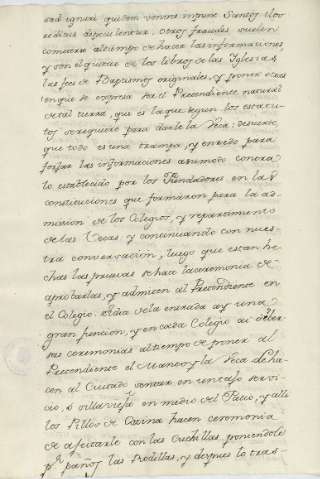 sed ignari quidem venire impune
reditus adipiscentur. Otros fraudes suelen
cometerse al tiempo de hacer las informaciones
y son el quitar de los libros de las Iglesias
las fees de Baptismos originales, y poner otras
en que se expresa ser el Pretendiente natural
de tal tierra, que es la que segun los estatu-
tos se requiere para darle la Veca: de suerte,
que todo es una trampa, y enredo para
forjar las informaciones a su modo contra
lo establecido por los Fundadores en las
constituciones que formaron para la ad-
mision de los Colegios, y repartimiento
de las Vecas. y continuando con nues-
tra conversacion, luego que estan he-
chas las pruevas se hace la ceremonia de
aprobarlas, y admiten al Pretendiente en
el Colegio. el dia de la entrada ay una
gran funcion, y en cada Colegio ai diver-
sas ceremonias al tiempo de poner al
Pretendiente el Manto y la Veca de ha-
cen al Cuitado sentar en un taso servi-
cio o villaviexa en medio del Patio, y alli
los Pillos de Cocina hacen ceremonia
de afeitarle con las Cuchillas, poniendole
pr. paños las Rodillas, y despues lo tras-